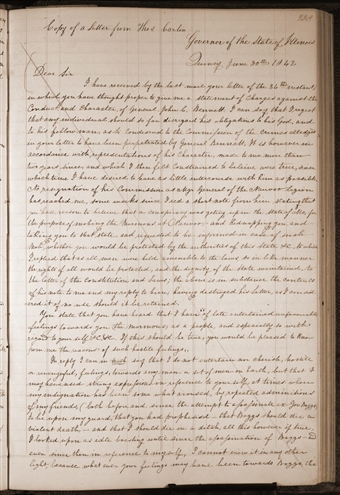 Copy of a Letter from Thos Carlin
Governor of the State of Illinois
Quincy June 30th 1842.
Dear Sir
I have received by the last mail your letter of the 24th instant,
in which you have thought proper to give me a statement of Charges against the
Conduct and Character of General John C. Bennett. I can say that I regret
that any individual should so far disregard his obligations to his God, and
to his fellow man, as to condescend to the Commission of the crimes alledged
in your letter to have been perpetrated by General Bennett. It is however in
accordance with representations of his Character, made to me more than
two years since, and which I then felt constrained to believe were true, since
which time I have desired to have as little intercourse with him as possible.
No resignation of his Commission as Major General of the Nauvoo Legion
has reached me, some weeks since I recd a short note from him stating that
you had reason to believe that a conspiracy was getting up in the State of Mo. for
the purpose of mobbing the Mormons at Nauvoo, and kidnapping you and
taking you to that State, and requested to be informed in case of such
Mob, whether you would be protected by the authorities of this State &c. to which
I replied that as all men were held amenable to the laws so in like manner
the rights of all would be protected, and the dignity of the State maintained, to
the letter of the Constitution and laws; the above is in substance the contents
of his note to me and my reply to him, having destroyed his letter, as I consid-
ered it of no use should it be retained.
You state that you have heard that I have of late entertained unfavorable
feelings towards you (the Mormons) as a people, and especially so with
regard to yourself &c &c. If this should be true, you would be pleased to know
from me the reasons of such hostile feelings.
In reply I can in truth say that I do not entertain nor cherish, hostile
or revengeful, feelings, towards any man or set of men on Earth, but that I
may have used strong expressions in reference to yourself, at times when
my indignation has been some what aroused, by repeated admonitions
of my friends (both before and since the attempt to assassinate Ex Gov Boggs)
to be upon my guard; that you had prophesied that Boggs should die a
violent death, and that I should die in a ditch, all this however if true,
I looked upon as idle boasting until since the assassination of Boggs, and
even since then in reference to myself, I cannot view it in any other
light, because what ever your feelings may have been towards Boggs, the